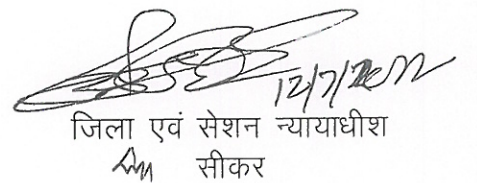 12/7/2022
जिला एवं सेशन न्यायाधीश
सीकर